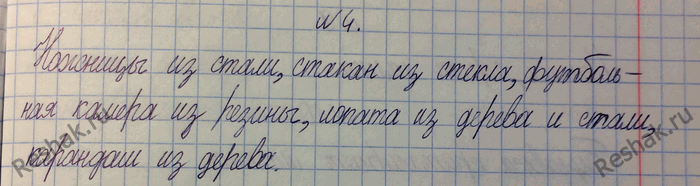 №4.
Ножницы из стали, стакан из стекла, футболь-
ная камера из резины, лопата из дерева и стали,
карандаш из дерева.
Reshak.ru
Reshak.ru
Reshak.ru